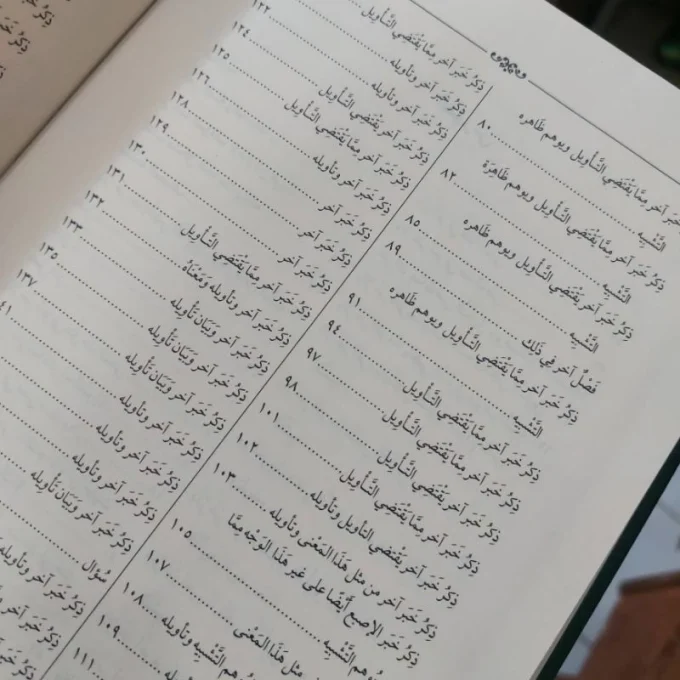 خبر آخر مِمَّا يَقْتَضِي التَّأويل ويوهم ظاهره
التَّشْبِيه ............ ٨٠
ذِكْرُ خَبَر آخر مِمَّا يَقْتَضِي التَّأويل ويوهم ظَاهِرَهُ
التَّشْبِيه ............ ٨٢
ذِكْرُ خَبَر آخر يَقْتَضِي التَّأويل ويوهم ظاهره
التَّشْبِيه ............ ٨٥
فَصْلٌ آخر في ذَلك ............ ٨٩
ذِكْرُ خَبَر آخر مِمَّا يَقْتَضِي التَّأويل ويوهم ظاهره
التَّشْبِيه ............ ٩١
ذِكْرُ خَبَر آخر مِمَّا يَقْتَضِي التَّأويل ............ ٩٤
ذِكْرُ خَبَر آخر مِمَّا يَقْتَضِي التَّأويل ............ ٩٧
ذِكْرُ خَبَر آخر يَقْتَضِي التَّأويل ............ ٩٨
ذِكْرُ خَبَر آخر مِمَّا يَقْتَضِي التَّأويل ............ ١٠١
ذِكْرُ خَبَر آخر يَقْتَضِي التأويل وتأويله ............ ١٠٢
ذِكْرُ خَبَر آخر من مثل هَذَا المَعْنى وتأويله ............ ١٠٣
ذِكْرُ خَبَر الإصبع أَيْضًا على غير هَذَا الوَجْه مِمَّا
يُوهم التَّشْبِيه ............ ١٠٥
مثل هَذَا المَعْنى ............ ١٠٧
يُوهم التَّشْبِيه وتأويله ............ ١٠٨
١٠٩
١١١
ذِكْرُ خَبَر آخر مِمَّا يَقْتَضِي التَّأويل ............ ١٢٢
ذِكْرُ خَبَر آخر وتأويله ............ ١٢٤
ذِكْرُ خَبَر آخر يَقْتَضِي التَّأويل ............ ١٢٥
ذِكْرُ خَبَر آخر مِمَّا يَقْتَضِي التَّأويل ............ ١٢٦
ذِكْرُ خَبَر آخر وتأويله ............ ١٢٨
ذِكْرُ خَبَر آخر ............ ١٢٩
ذِكْرُ خَبَر آخر ............ ١٣٠
ذِكْرُ خَبَر آخر ............ ١٣١
ذِكْرُ خَبَر آخر مِمَّا يَقْتَضِي التَّأويل ............ ١٣٢
ذِكْرُ خَبَر آخر وتأويله وَمَعْنَاهُ ............ ١٣٣
ذِكْرُ خَبَر آخر وَبَيَان تَأْويله ............ ١٣٥
ذِكْرُ خَبَر آخر وَبَيَان تَأْويله ............ ١٣٧
ذِكْرُ خَبَر آخر وَبَيَان تَأْويله
ذِكْرُ خَبَر آخر وتأويله
ذِكْرُ خَبَر آخر وتأويله
ذِكْرُ خَبَر آخر وَبَيَان تَأْويله
سُؤال
ذِكْرُ خَبَر آخر وتأويله